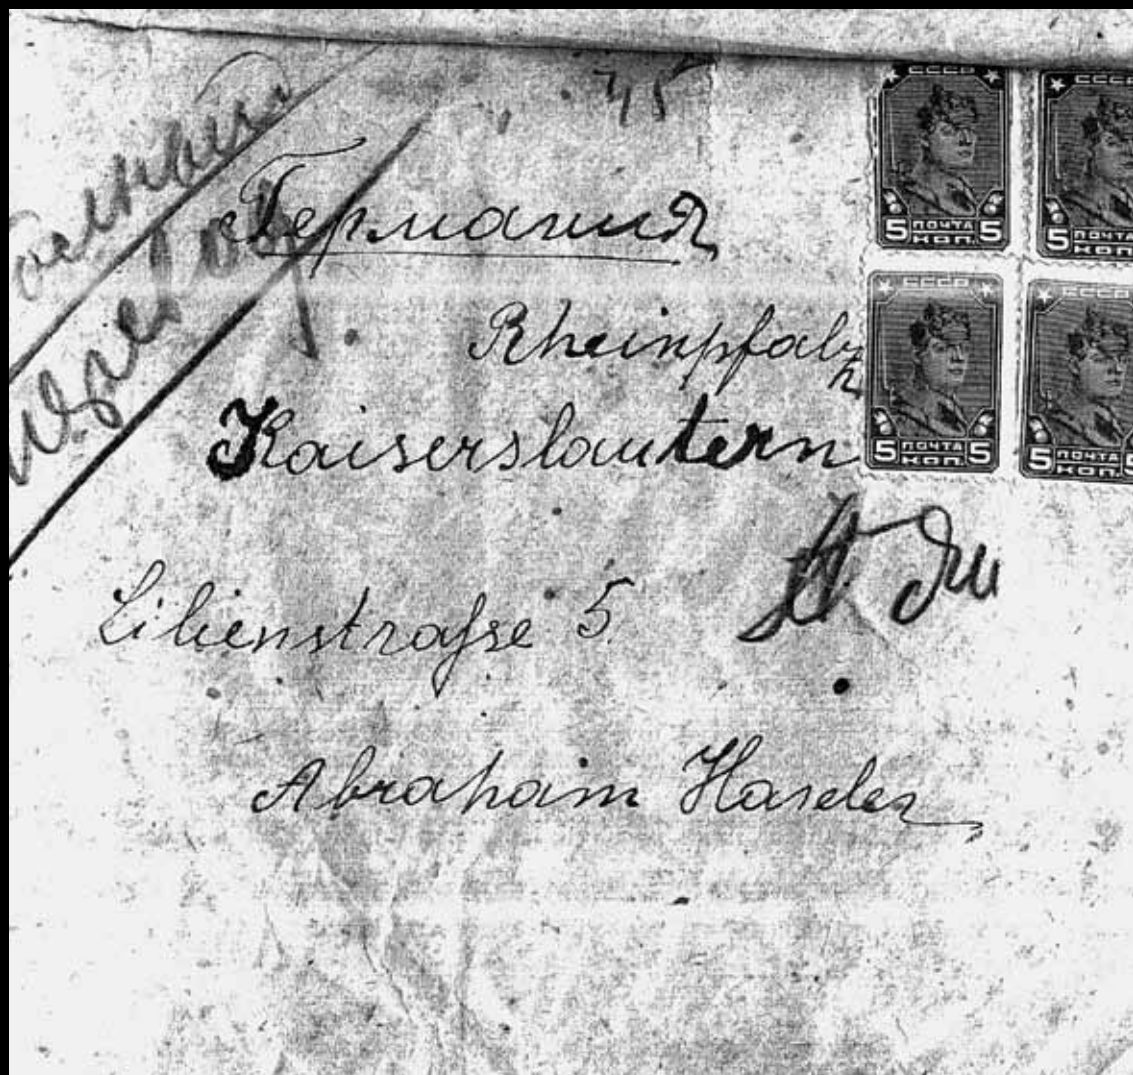 Германия
Rheinpfalz
Kaiserslautern
Lilienstraße 5.
Abraham Haseler
СССР
5 ПОЧТА КОП. 5
СССР
5 ПОЧТА КОП.
СССР
5 ПОЧТА КОП. 5
СССР
5 ПОЧТА КОП. 5